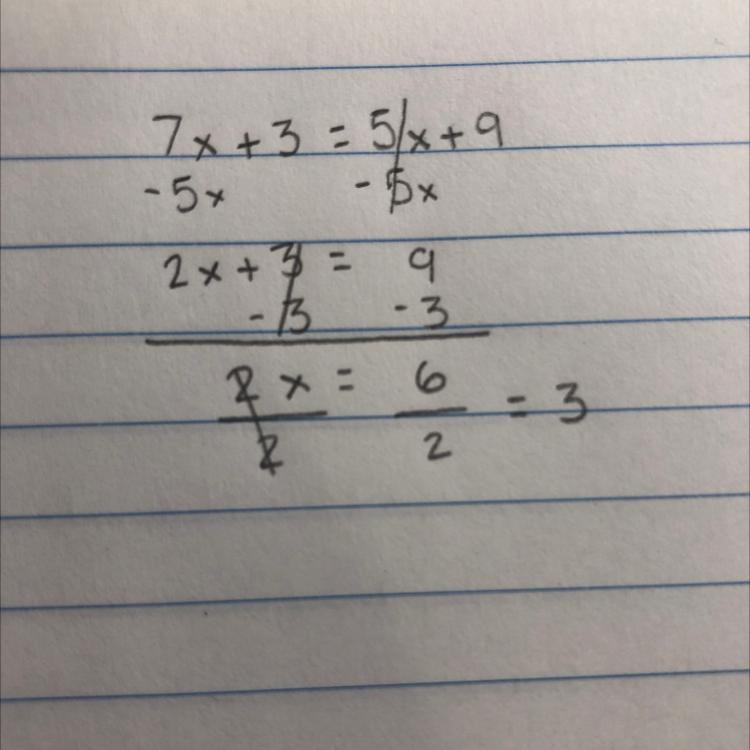 7x + 3 = 5x + 9
-5x -5x
2x + 3 = 9
-3 -3
2x = 6 = 3
2 2